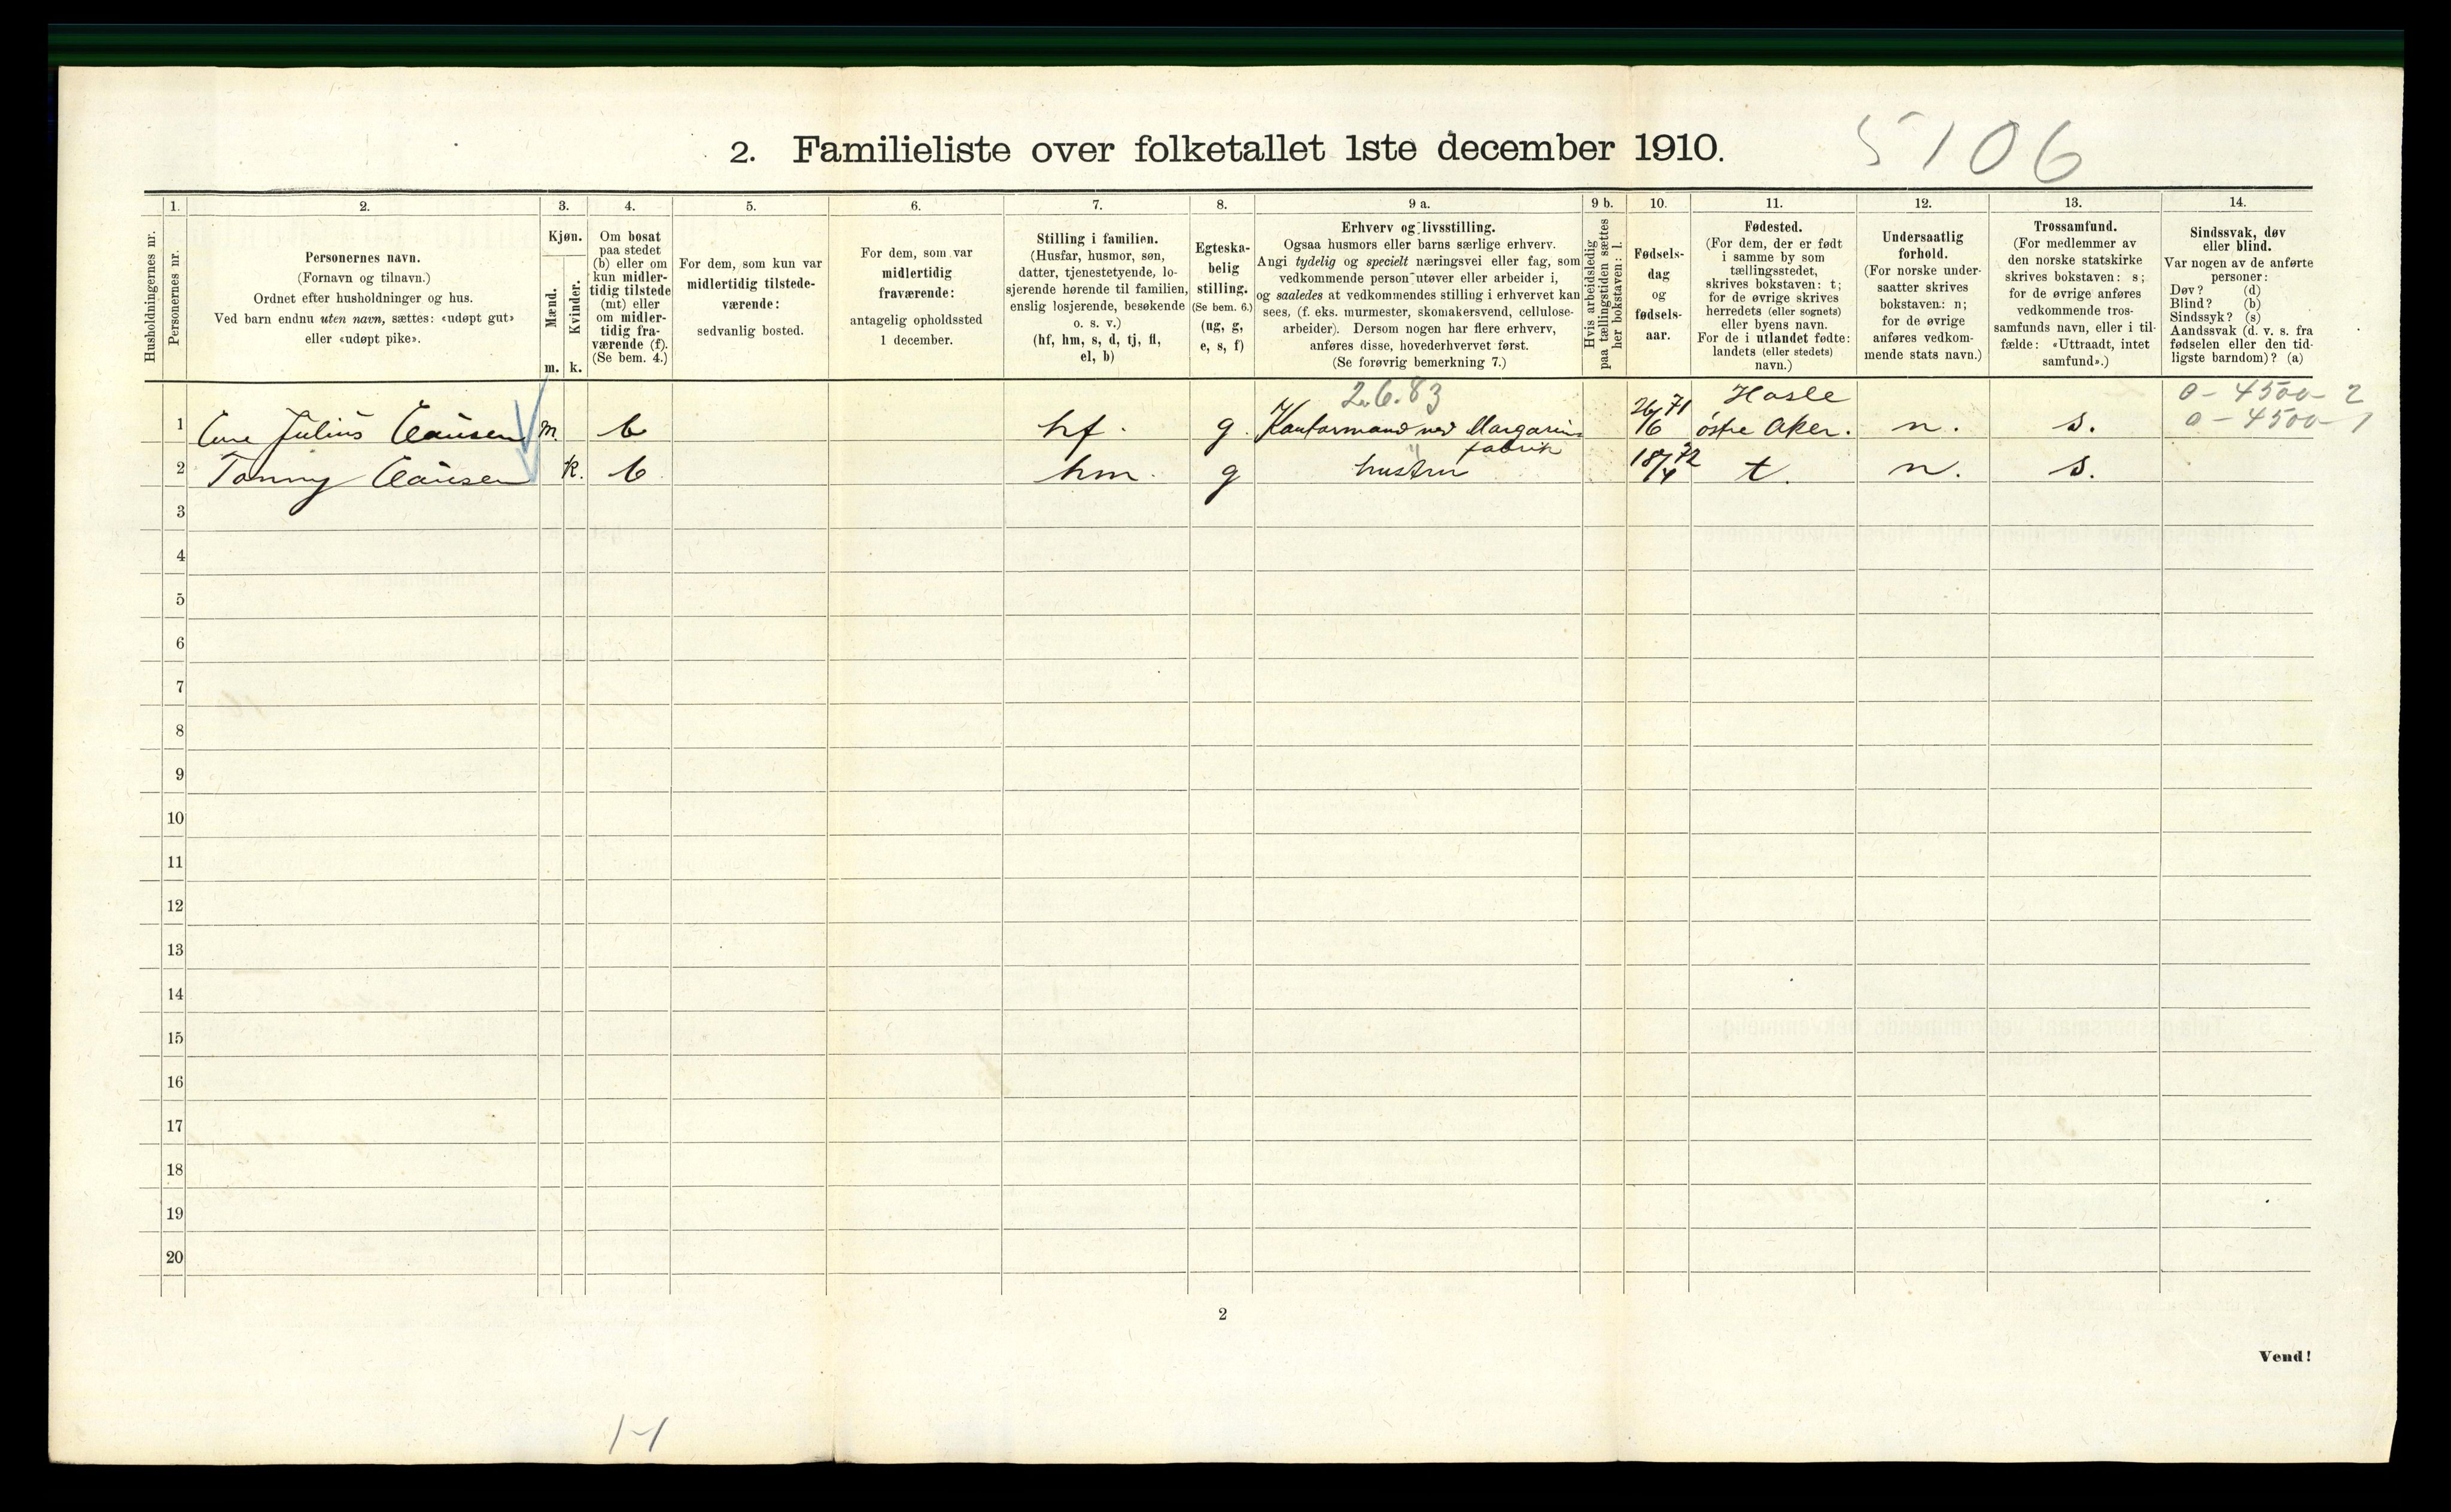 5106
2. Familieliste over folketallet 1ste december 1910.
1. 2. 3. 4. 5. 6. 7. 8. 9 a. 9 b. 10. 11. 12. 13. 14.
Husholdningernes nr.
Personernes nr.
Personernes navn.
(Fornavn og tilnavn.)
Ordnet efter husholdninger og hus.
Ved barn endnu uten navn, sættes: «udøpt gut»
eller «udøpt pike».
Kjøn.
Mænd.
Kvinder.
m. k.
Om bosat
paa stedet
(b) eller om
kun midler-
tidig tilstede
(mt) eller
om midler-
tidig fra-
værende (f).
(Se bem. 4.)
For dem, som kun var
midlertidig tilstede-
værende:
sedvanlig bosted.
For dem, som var
midlertidig
fraværende:
antagelig opholdssted
1 december.
Stilling i familien.
(Husfar, husmor, søn,
datter, tjenestetyende, lo-
sjerende hørende til familien,
enslig losjerende, besøkende
o. s. v.)
(hf, hm, s, d, tj, fl,
el, b)
Egteska-
belig
stilling.
(Se bem. 6.)
(ug, g,
e, s, f)
Erhverv og livsstilling.
Ogsaa husmors eller barns særlige erhverv.
Angi tydelig og specielt næringsvei eller fag, som
vedkommende person utøver eller arbeider i,
og saaledes at vedkommendes stilling i erhvervet kan
sees, (f. eks. murmester, skomakersvend, cellulose-
arbeider). Dersom nogen har flere erhverv,
anføres disse, hovederhvervet først.
(Se forøvrig bemerkning 7.)
Hvis arbeidsledig
paa tællingstiden sættes
her bokstaven: l.
Fødsels-
dag
og
fødsels-
aar.
Fødested.
(For dem, der er født
i samme by som
tællingsstedet,
skrives bokstaven: t;
for de øvrige skrives
herredets (eller sognets)
eller byens navn.
For de i utlandet fødte:
landets (eller stedets)
navn.)
Undersaatlig
forhold.
(For norske under-
saatter skrives
bokstaven: n;
for de øvrige
anføres vedkom-
mende stats navn.)
Trossamfund.
(For medlemmer av
den norske statskirke
skrives bokstaven: s;
for de øvrige anføres
vedkommende tros-
samfunds navn, eller i til-
fælde: «Uttraadt, intet
samfund».)
Sindssvak, døv
eller blind.
Var nogen av de anførte
personer:
Døv? (d)
Blind? (b)
Sindssyk? (s)
Aandssvak (d. v. s. fra
fødselen eller den tid-
ligste barndom)? (a)
2.6.83 Hasle 0 - 4500 - 2
1 Julius Clausen m. b hf. g. Kontormand ved Margarin 26/6 71 östre Aker. n. s. 0 - 4500 - 1
fabrik
2 Clausen k. b hm. g hustru 72 t. n. s.
3
4
5
6
7
8
9
10
11
12
13
14
15
16
17
18
19
20
2
Vend!